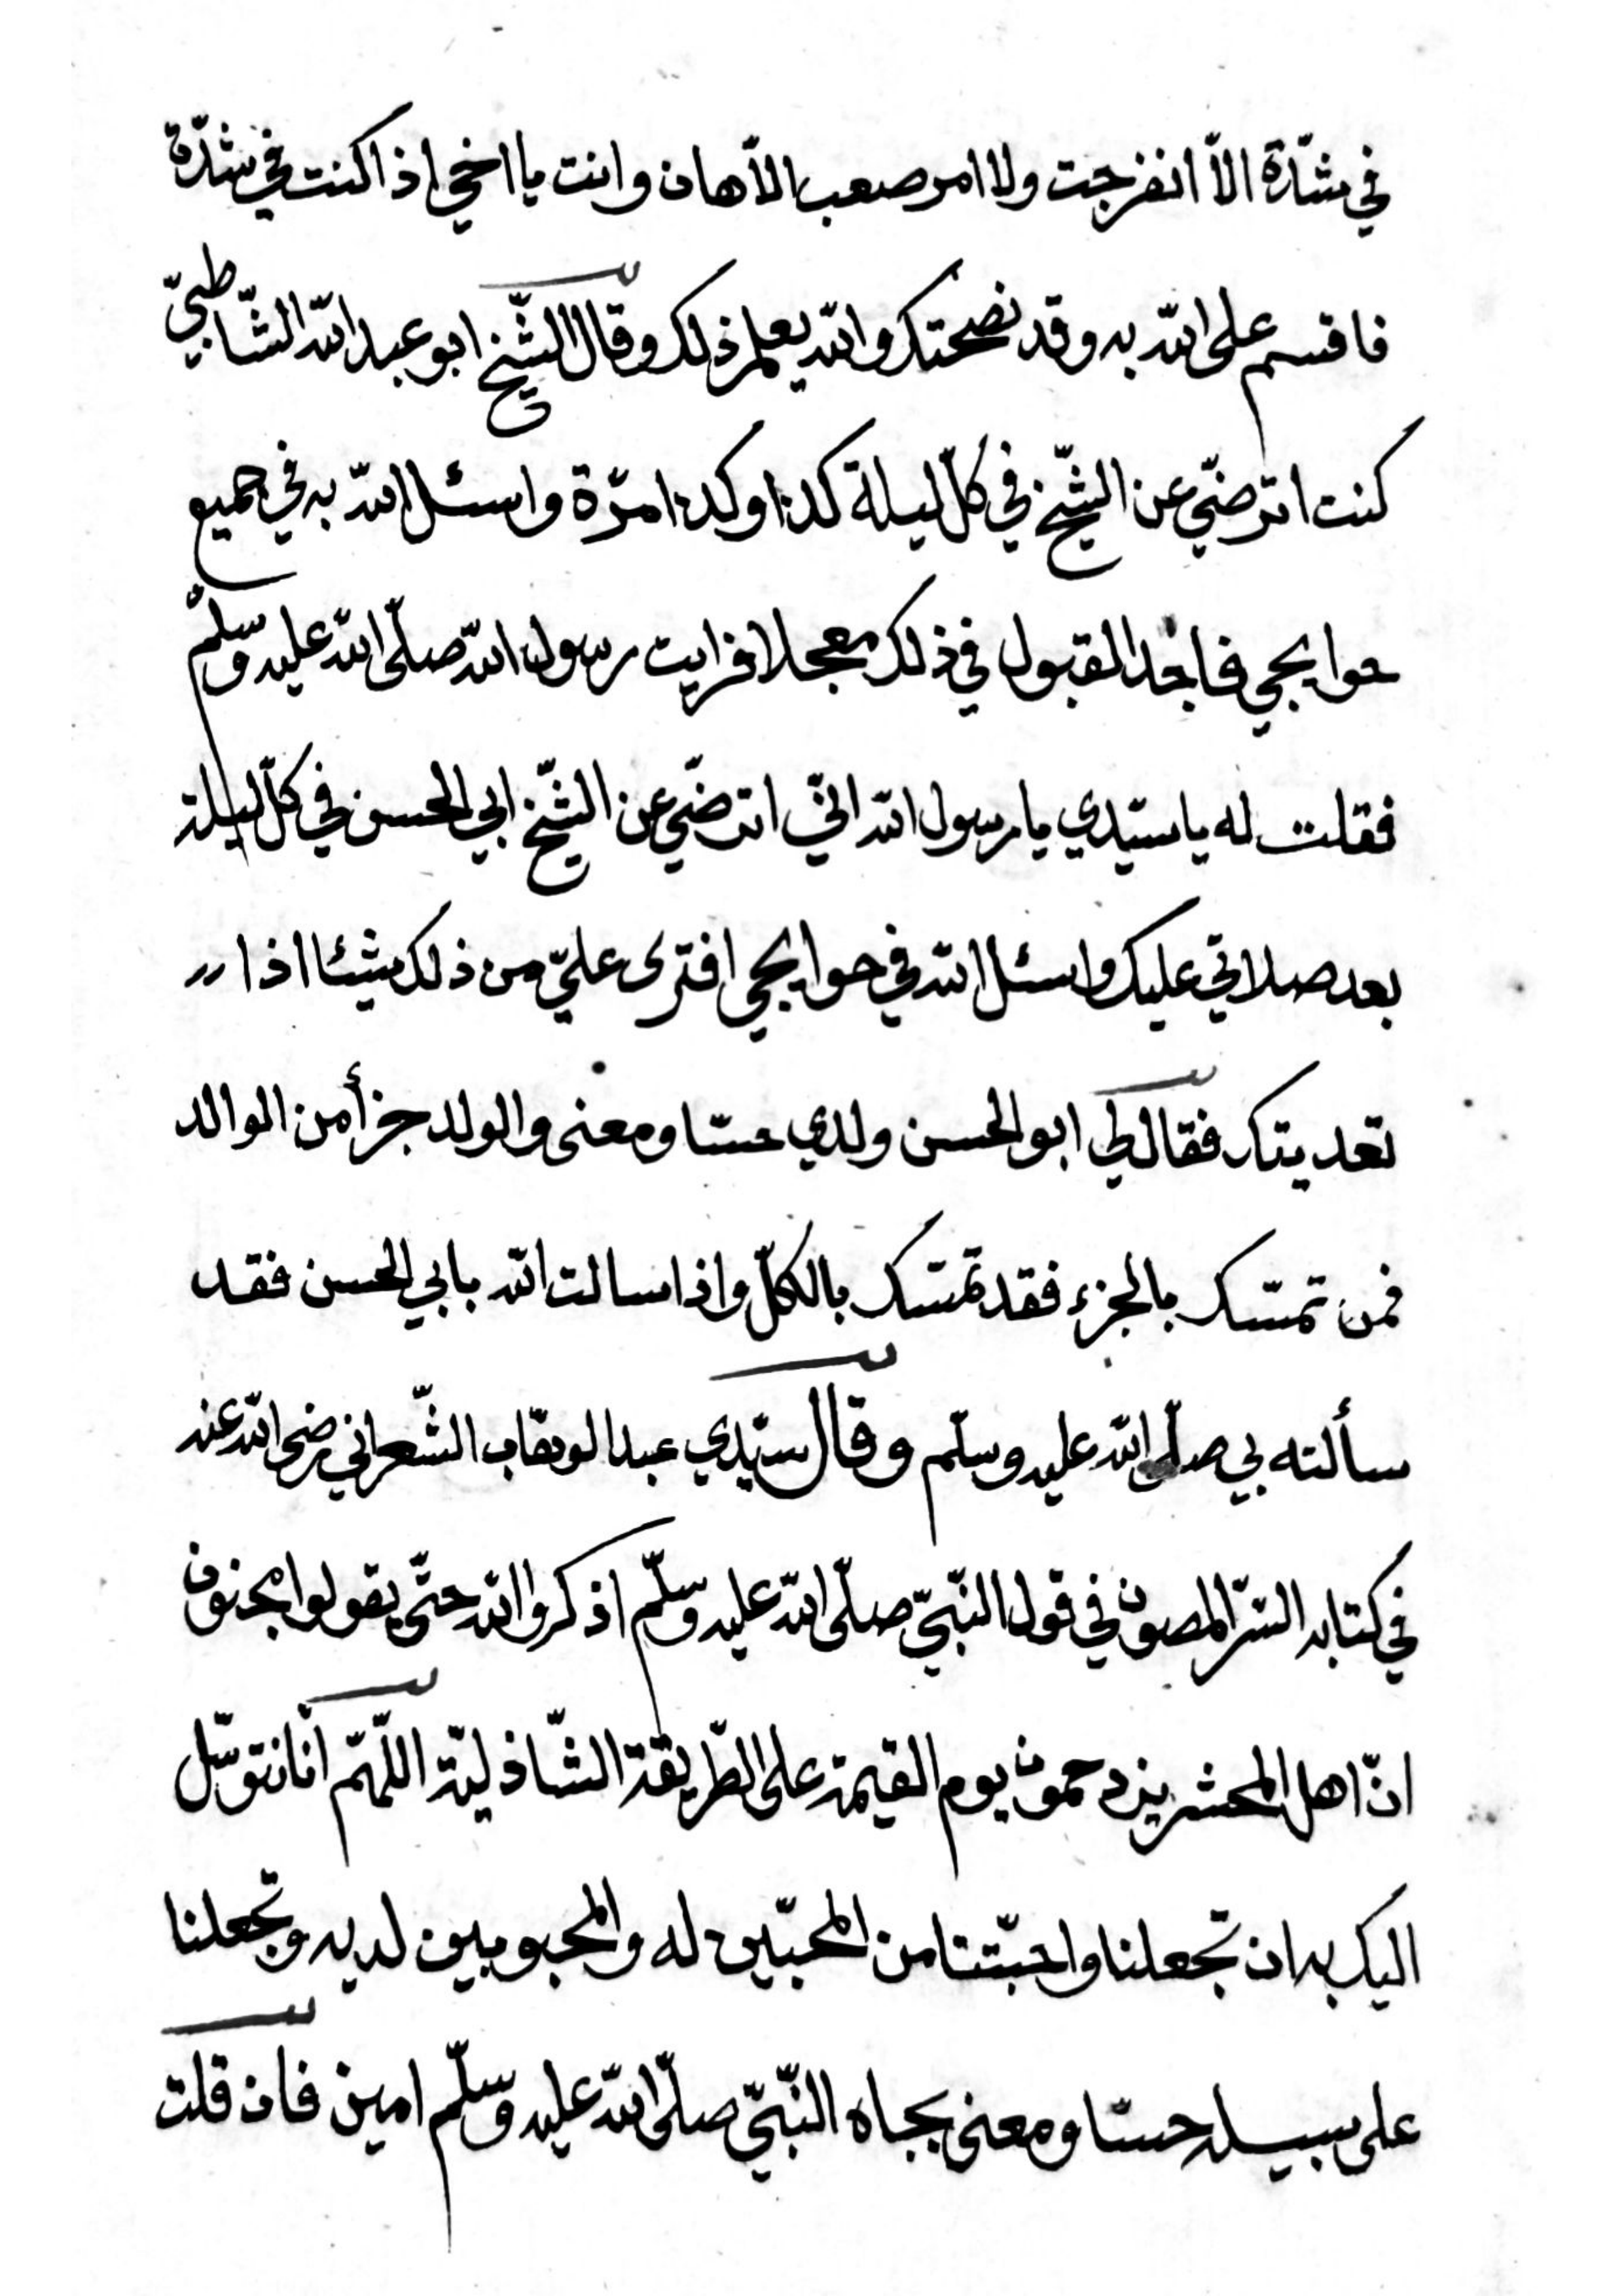 في شدّة الاّ انفرجت ولا امر صعب الاّ هان وانت يا اخي اذا كنت في شدّة
فاقسم على اللّه به وقد نصحتك واللّه يعلم ذلك وقال الشّيخ ابو عبد اللّه الشّاطبيّ
كنت اترضّي عن الشّيخ في كلّ ليلة كذا وكذا مرّة واسئل اللّه به في جميع
حوايجي فاجد القبول في ذلك معجلا فرايت رسول اللّه صلّى اللّه عليه وسلّم
فقلت له يا سيّدي يا رسول اللّه انّي اترضّي عن الشّيخ ابي الحسن في كلّ ليلة
بعد صلاتي عليك واسئل اللّه في حوايجي افترى عليّ من ذلك شيئا اذا
تعديتك فقال لي ابو الحسن ولدي حسّا ومعنى والولد جزأ من الوالد
فمن تمسّك بالجزء فقد تمسّك بالكلّ واذا سالت اللّه بابي الحسن فقد
سألته بي صلّى اللّه عليه وسلّم وقال سيّدي عبد الوهّاب الشّعراني رضى اللّه عنه
في كتابه السّر المصون في قول النّبيّ صلّى اللّه عليه وسلّم اذكروا اللّه حتّى يقولوا مجنون
انّ اهل المحشر يزدحمون يوم القيمة على الطّريقة الشّاذليّة اللّهمّ انّا نتوسّل
اليك به ان تجعلنا واحبّتنا من المحبّين له والمحبوبين لديه وتجعلنا
على سبيله حسّا ومعنى بجاه النّبيّ صلّى اللّه عليه وسلّم امين فان قلت